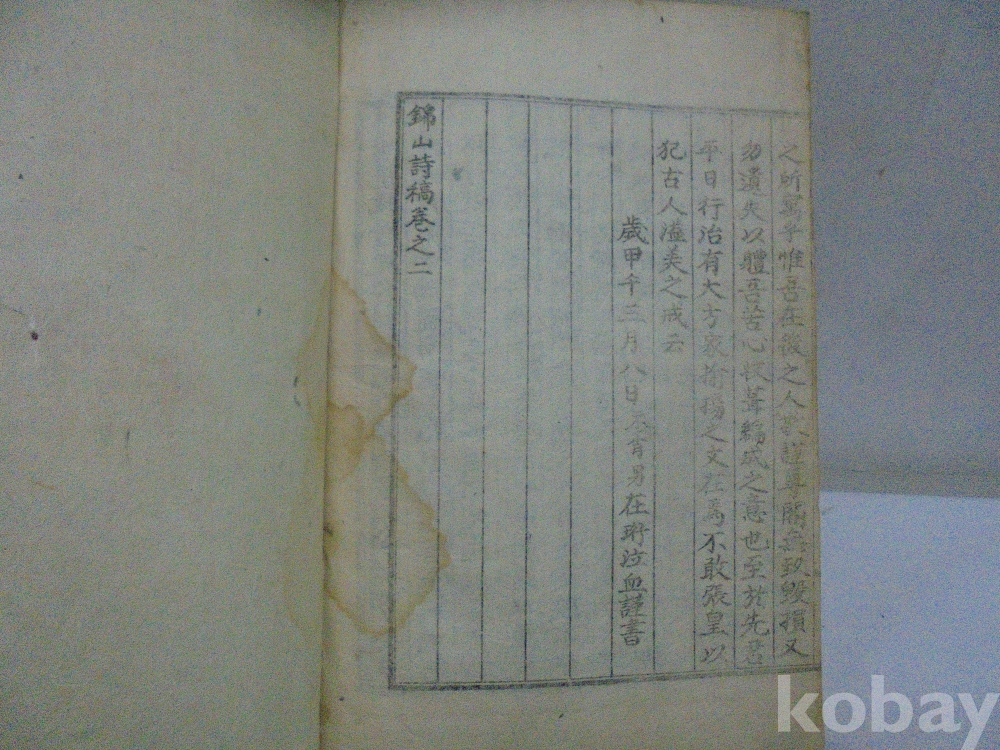 之所寓乎惟吾在後之人敬謹尊閣無致毀損又
勿遺失以體吾苦心收葺編成之意也至於先君
平日行治有大方家揄揚之文在焉不敢張皇以
犯古人溢美之戒云
歲甲午三月八日不肖男在珩泣血謹書
錦山詩稿卷之二
kobay